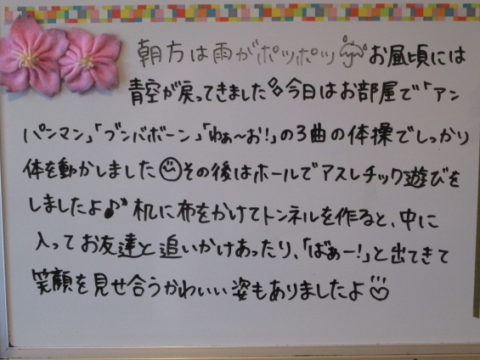 朝方は雨がポツポツ お昼頃には
青空が戻ってきました 今日はお部屋で「アン
パンマン」「ブンバボーン」「わぁ〜お!」の3曲の体操でしっかり
体を動かしました その後はホールでアスレチック遊びを
しましたよ♪ 机に布をかけてトンネルを作ると、中に
入ってお友達と追いかけあったり、「ばぁー!」と出てきて
笑顔を見せ合うかわいい姿もありましたよ